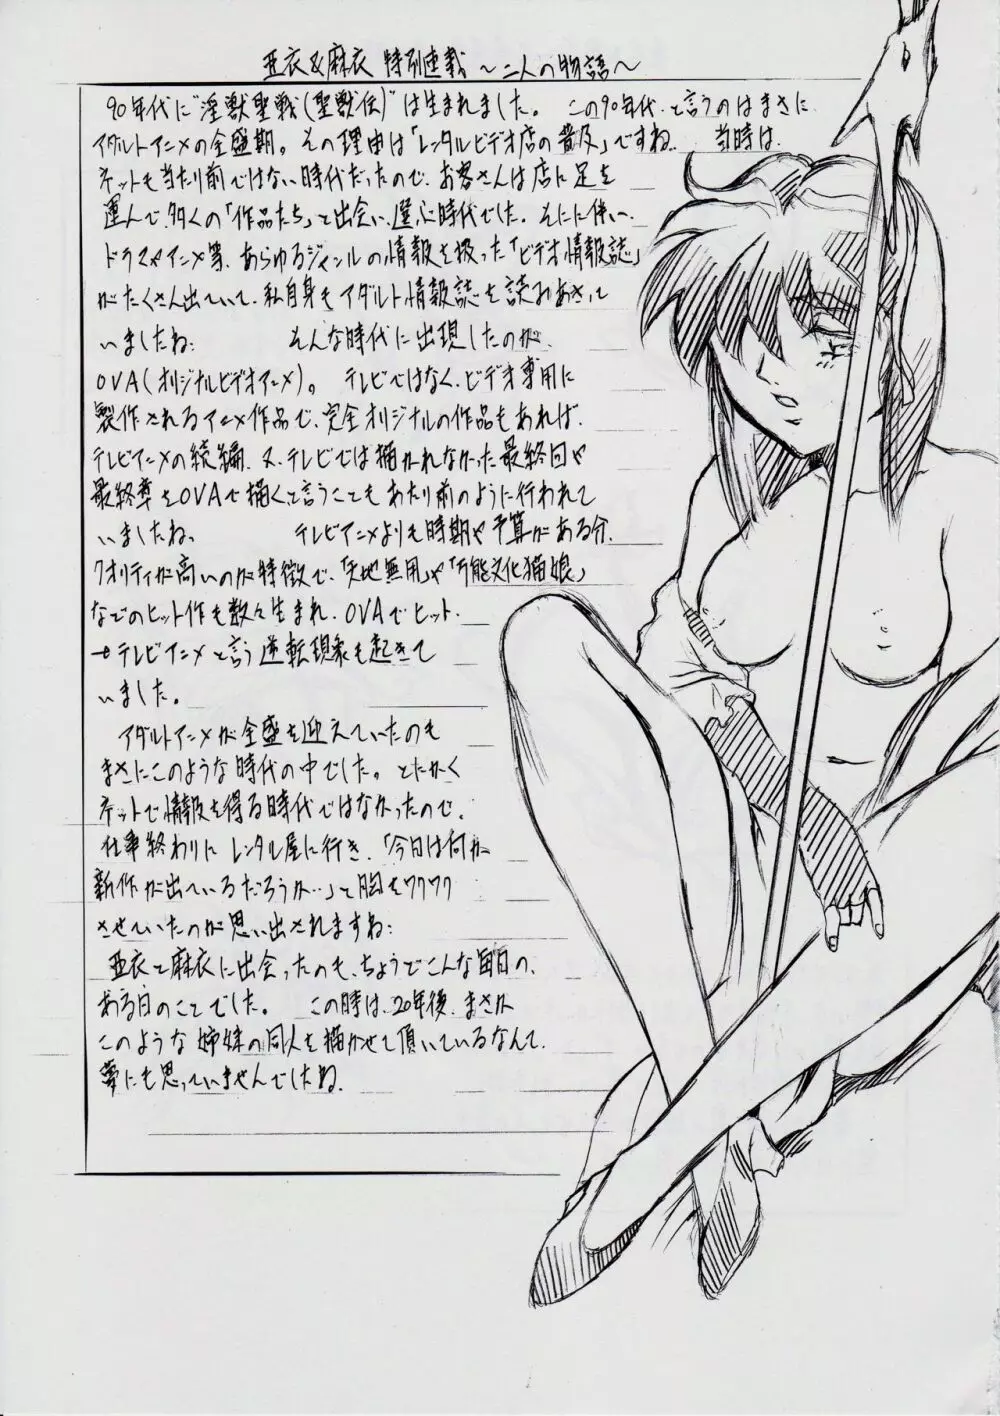 亜衣&麻衣 特別連載 ～二人の物語～
90年代に"淫獣聖戦(聖獣伝)"は生まれました。 この90年代と言うのはまさに
アダルトアニメの全盛期。その理由は「レンタルビデオ店の普及」ですね。 当時は
ネットも当たり前ではない時代だったので、お客さんは店に足を
運んで、多くの「作品たち」と出会い、選ぶ時代でした。それに伴い、
ドラマやアニメ等、あらゆるジャンルの情報を扱った「ビデオ情報誌」
がたくさん出ていて、私自身もアダルト情報誌を読みあさって
いましたね。 そんな時代に出現したのが、
OVA(オリジナルビデオアニメ)。 テレビではなく、ビデオ専用に
製作されるアニメ作品で、完全オリジナルの作品もあれば、
テレビアニメの続編、又、テレビでは描かれなかった最終回や
最終章をOVAで描くと言うこともあたり前のように行われて
いましたね。 テレビアニメよりも時期や予算がある分、
クオリティが高いのが特徴で、「天地無用」や「万能文化猫娘」
などのヒット作も数々生まれ、OVAでヒット
→テレビアニメと言う逆転現象も起きて
いました。
アダルトアニメが全盛を迎えていたのも
まさにこのような時代の中でした。とにかく
ネットで情報を得る時代ではなかったので、
仕事終わりにレンタル屋に行き、「今日は何か
新作が出ているだろうか…」と胸をワクワク
させていたのが思い出されますね。
亜衣と麻衣に出会ったのも、ちょうどこんな毎日の、
ある日のことでした。 この時は、20年後、まさか
このような姉妹の同人を描かせて頂いているなんて、
夢にも思っていませんでしたね。